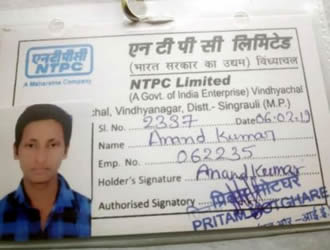 एन टी पी सी
NTPC
A Maharatna Company
एन टी पी सी लिमिटेड
(भारत सरकार का उद्यम) विंध्याचल
NTPC Limited
(A Govt. of India Enterprise) Vindhyachal
chal, Vindhyanagar, Distt.- Singrauli (M.P.)
Sl. No. 2337 Date 06.02.19
Name Anand Kumar
Emp. No. 062235
Holder's Signature Anand Kumar
Authorised Signatory
PRITAM